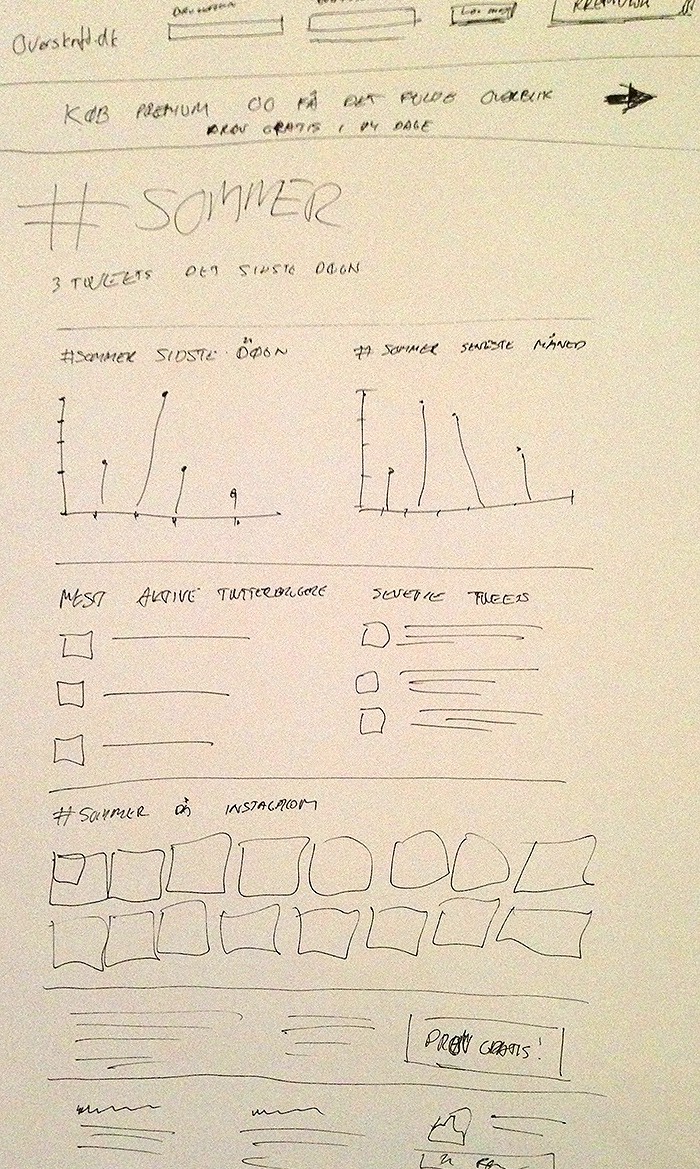 Overskrift.dk
LOG IND
PREMIUM
KØB PREMIUM OG FÅ DET FULDE OVERBLIK
PRØV GRATIS I 14 DAGE
#SOMMER
3 TWEETS DET SIDSTE DØGN
#SOMMER SIDSTE DØGN
#SOMMER SENESTE MÅNED
MEST AKTIVE TWITTERBRUGERE
SENESTE TWEETS
#SOMMER PÅ INSTAGRAM
PRØV GRATIS!